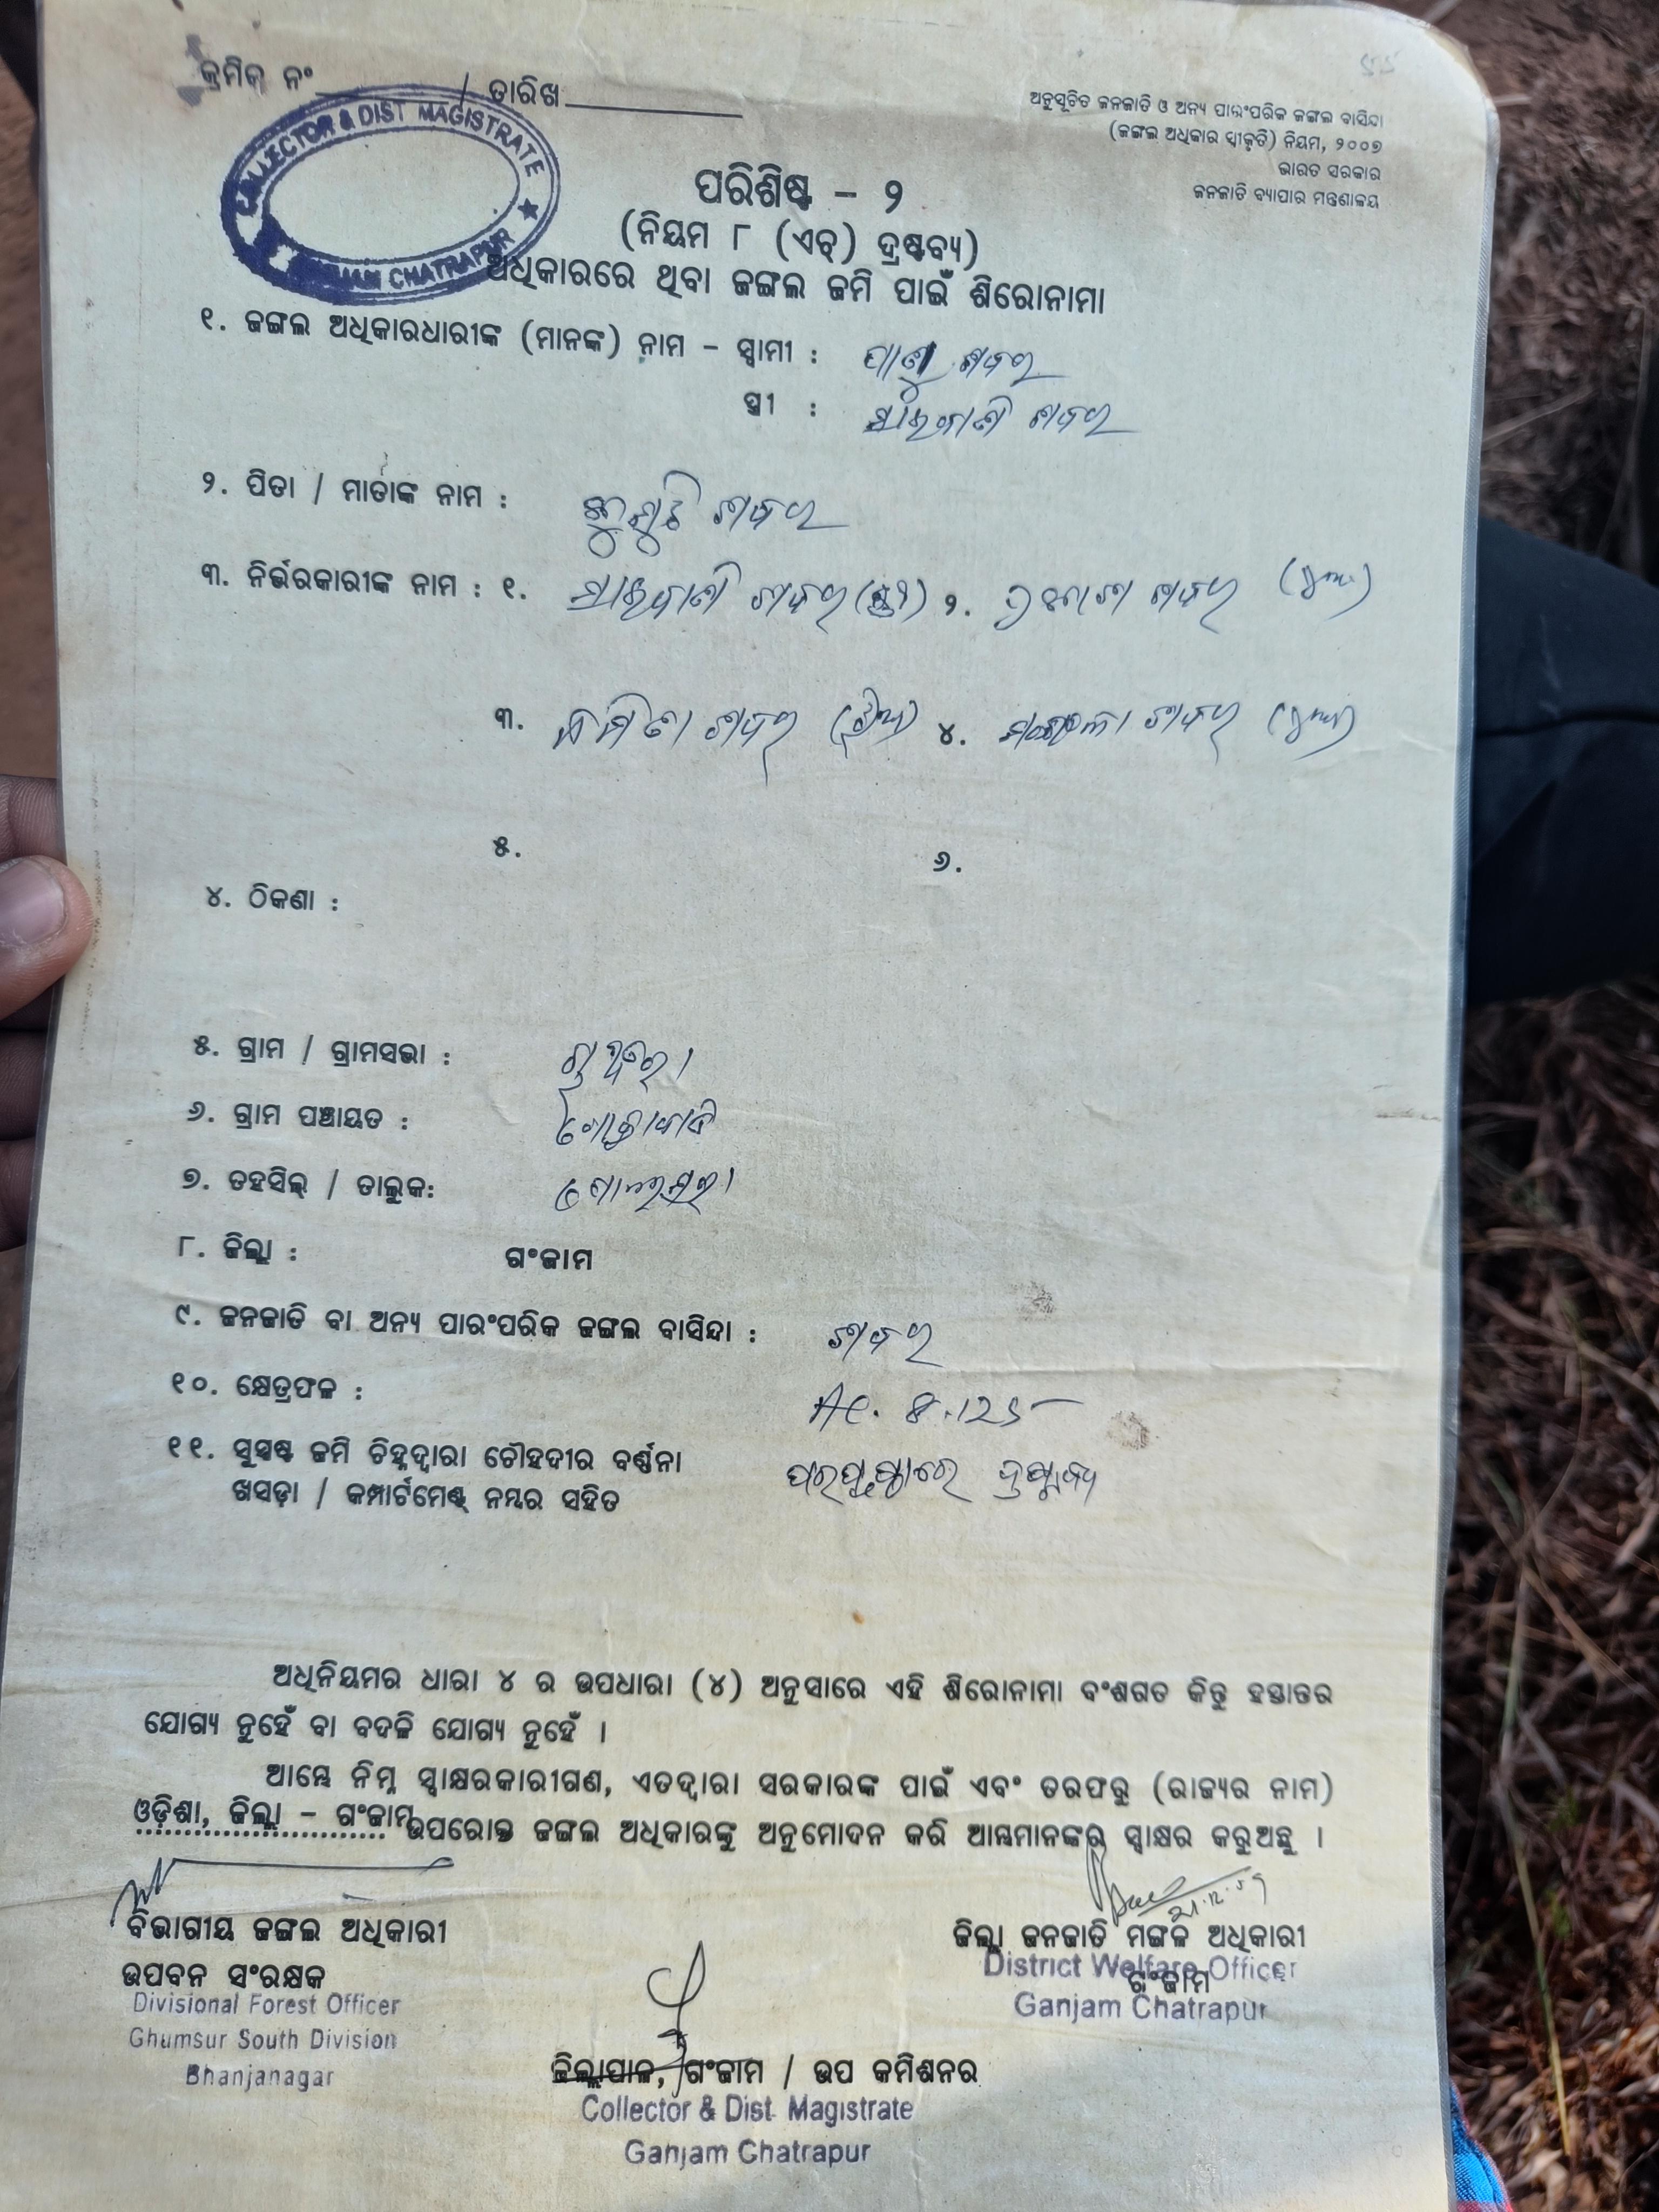 କ୍ରମିକ ନଂ ______ / ତାରିଖ ______
ଅନୁସୂଚିତ ଜନଜାତି ଓ ଅନ୍ୟ ପାରଂପରିକ ଜଙ୍ଗଲ ବାସିନ୍ଦା
(ଜଙ୍ଗଲ ଅଧିକାର ସ୍ୱୀକୃତି) ନିୟମ, ୨୦୦୭
ଭାରତ ସରକାର
ଜନଜାତି ବ୍ୟାପାର ମନ୍ତ୍ରଣାଳୟ
COLLECTOR & DIST MAGISTRATE
GANJAM CHATRAPUR
ପରିଶିଷ୍ଟ – ୨
(ନିୟମ ୮ (ଏଚ୍) ଦ୍ରଷ୍ଟବ୍ୟ)
ଅଧିକାରରେ ଥିବା ଜଙ୍ଗଲ ଜମି ପାଇଁ ଶିରୋନାମା
୧. ଜଙ୍ଗଲ ଅଧିକାରଧାରୀଙ୍କ (ମାନଙ୍କ) ନାମ – ସ୍ୱାମୀ : ଶବର
ସ୍ତ୍ରୀ : ଶବର
୨. ପିତା / ମାତାଙ୍କ ନାମ : ଶବର
୩. ନିର୍ଭରକାରୀଙ୍କ ନାମ : ୧. ଶବର (ସ୍ତ୍ରୀ) ୨. ଶବର
୩. ଶବର (ଝିଅ) ୪. ଶବର
୫. ୬.
୪. ଠିକଣା :
୫. ଗ୍ରାମ / ଗ୍ରାମସଭା :
୬. ଗ୍ରାମ ପଞ୍ଚାୟତ :
୭. ତହସିଲ୍ / ତାଲୁକ:
୮. ଜିଲ୍ଲା : ଗଂଜାମ
୯. ଜନଜାତି ବା ଅନ୍ୟ ପାରଂପରିକ ଜଙ୍ଗଲ ବାସିନ୍ଦା : ଶବର
୧୦. କ୍ଷେତ୍ରଫଳ : Ac.
୧୧. ସୁସ୍ପଷ୍ଟ ଜମି ଚିହ୍ନଦ୍ୱାରା ଚୌହଦୀର ବର୍ଣ୍ଣନା ପରପୃଷ୍ଠାରେ ଦ୍ରଷ୍ଟବ୍ୟ
ଖସଡ଼ା / କମ୍ପାର୍ଟମେଣ୍ଟ୍ ନମ୍ବର ସହିତ
ଅଧିନିୟମର ଧାରା ୪ ର ଉପଧାରା (୪) ଅନୁସାରେ ଏହି ଶିରୋନାମା ବଂଶଗତ କିନ୍ତୁ ହସ୍ତାନ୍ତର
ଯୋଗ୍ୟ ନୁହେଁ ବା ବଦଳି ଯୋଗ୍ୟ ନୁହେଁ ।
ଆମ୍ଭେ ନିମ୍ନ ସ୍ୱାକ୍ଷରକାରୀଗଣ, ଏତଦ୍ୱାରା ସରକାରଙ୍କ ପାଇଁ ଏବଂ ତରଫରୁ (ରାଜ୍ୟର ନାମ)
ଓଡ଼ିଶା, ଜିଲ୍ଲା – ଗଂଜାମ ଉପରୋକ୍ତ ଜଙ୍ଗଲ ଅଧିକାରଙ୍କୁ ଅନୁମୋଦନ କରି ଆମ୍ଭମାନଙ୍କର ସ୍ୱାକ୍ଷର କରୁଅଛୁ ।
ବିଭାଗୀୟ ଜଙ୍ଗଲ ଅଧିକାରୀ
ଉପବନ ସଂରକ୍ଷକ
Divisional Forest Officer
Ghumsur South Division
Bhanjanagar
ଜିଲ୍ଲା ଜନଜାତି ମଙ୍ଗଳ ଅଧିକାରୀ
ଗଂଜାମ
District Welfare Officer
Ganjam Chatrapur
ଜିଲ୍ଲାପାଳ, ଗଂଜାମ / ଉପ କମିଶନର
Collector & Dist. Magistrate
Ganjam Chatrapur